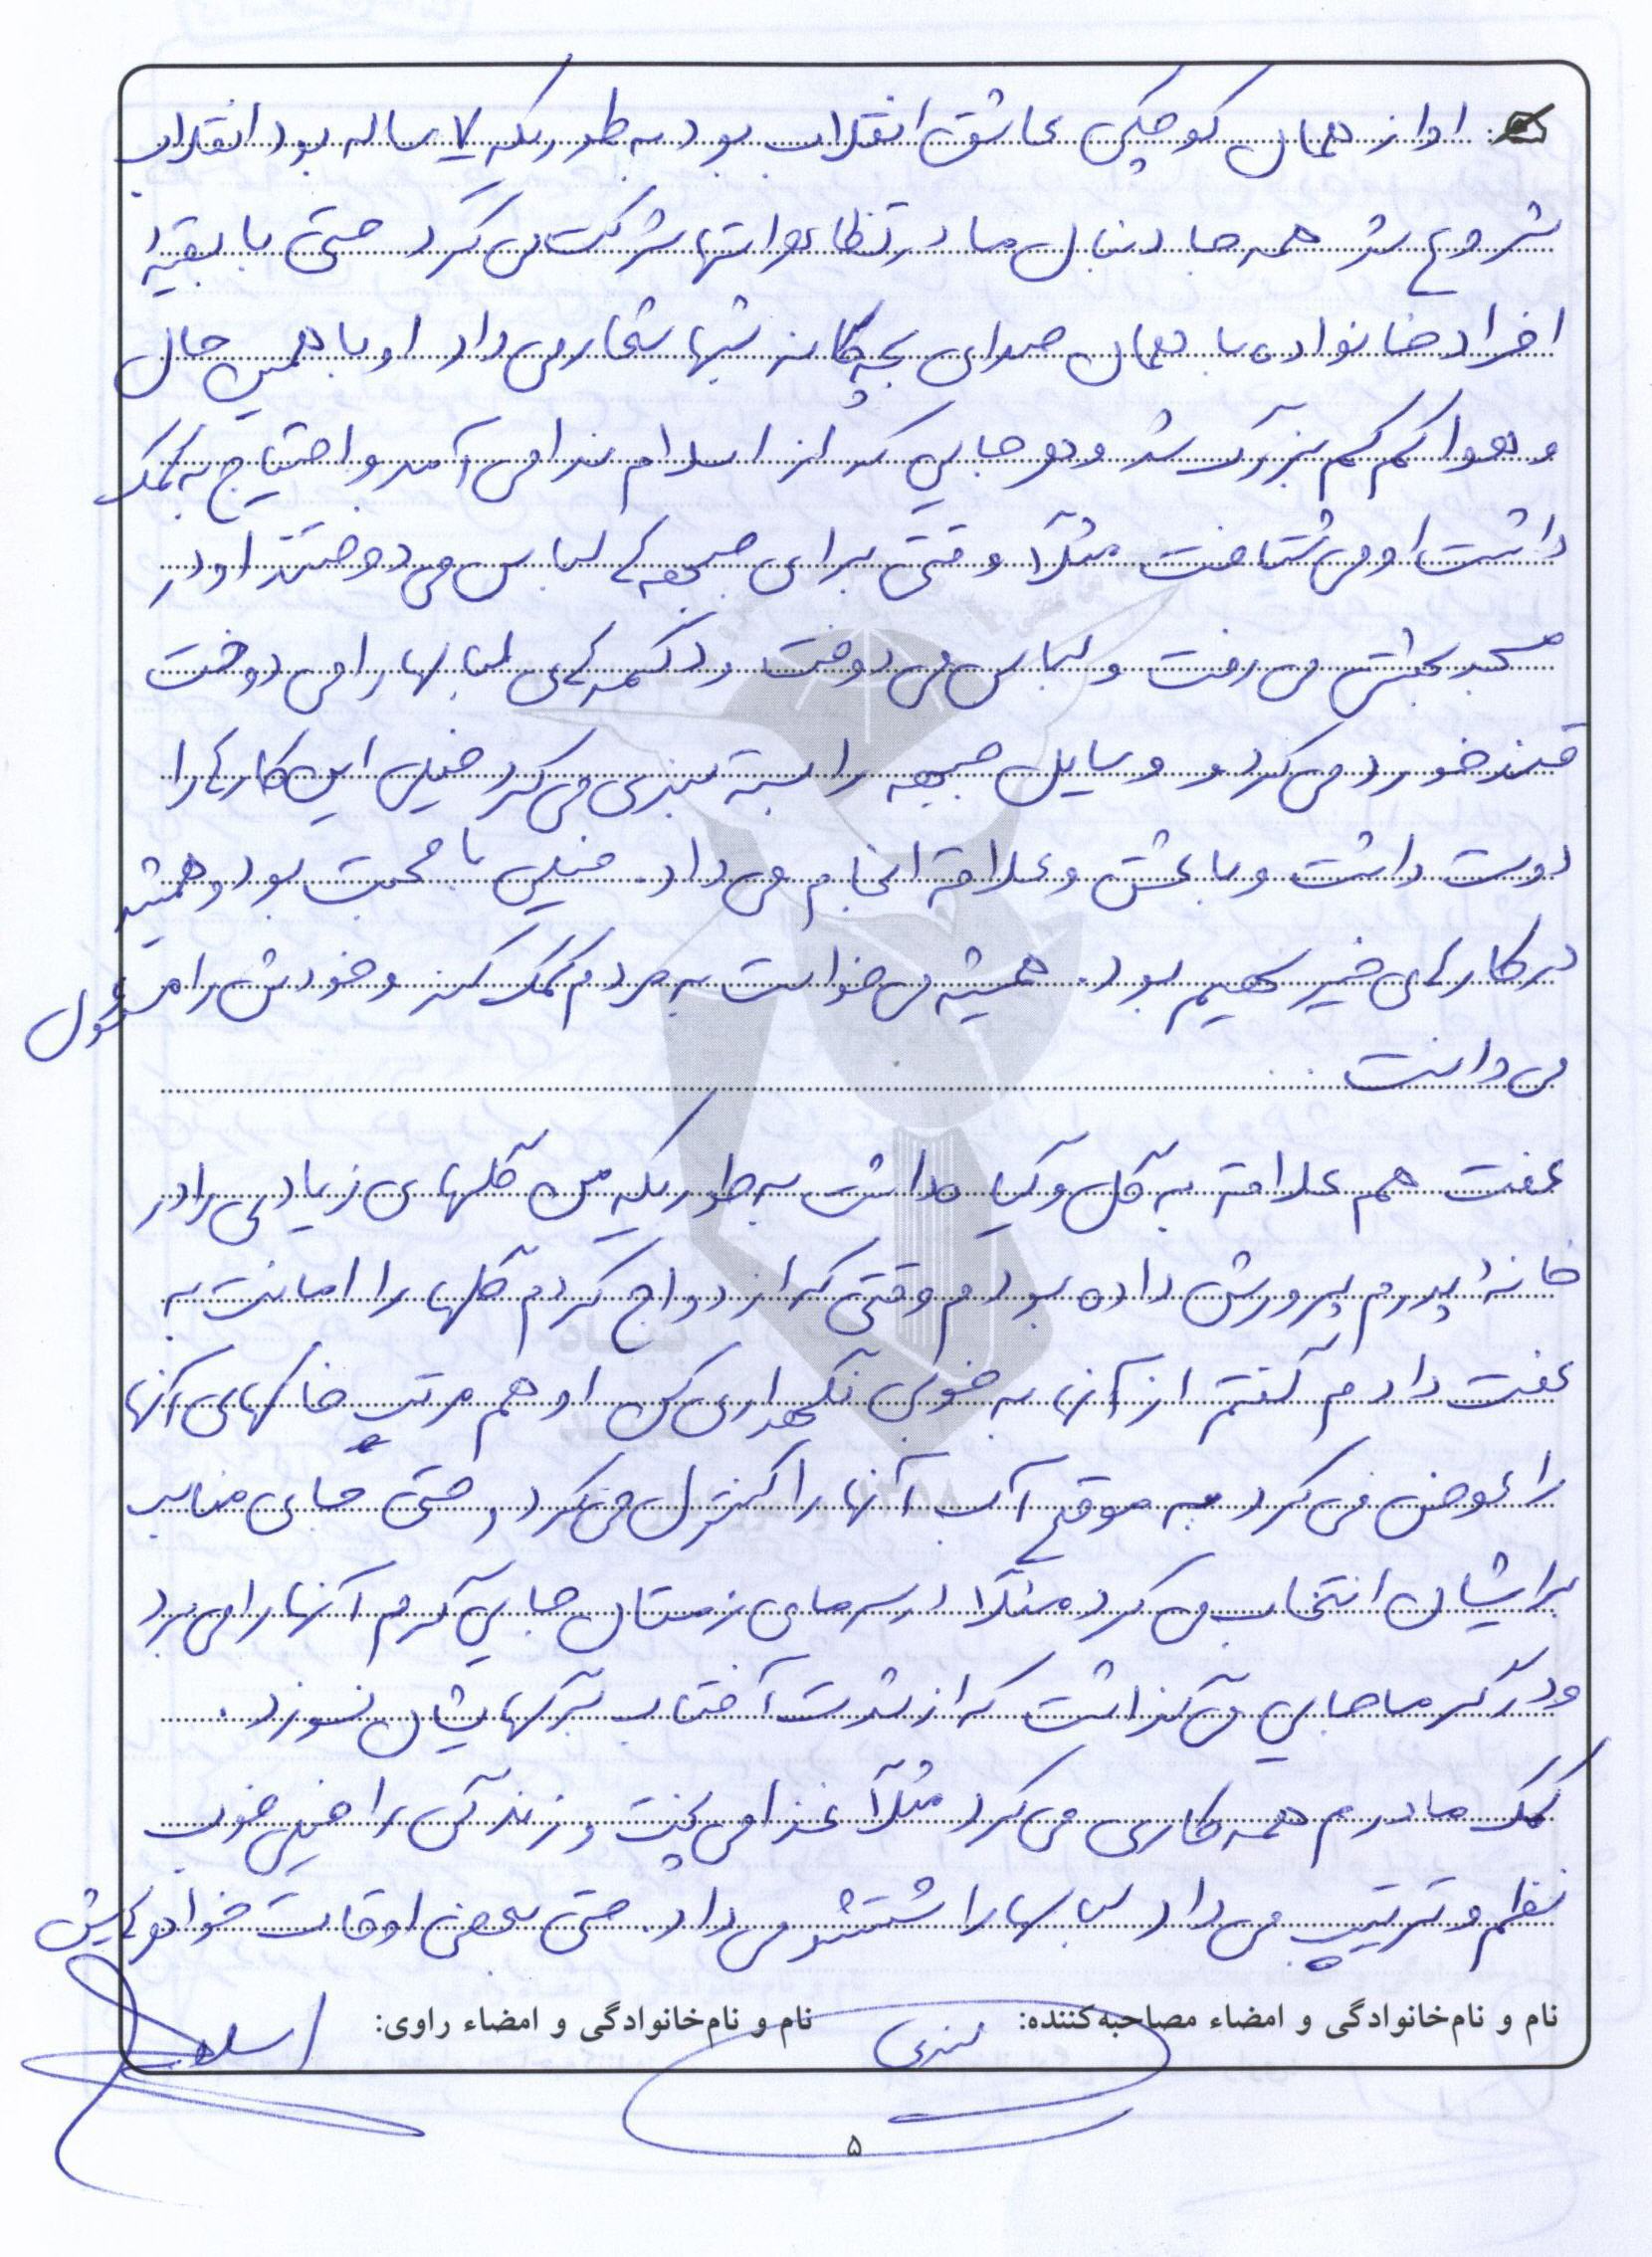 او از همان کوچکی عاشق انقلاب بود به طوریکه ۷ ساله بود انقلاب
شروع شد همه جا دنبال ما در تظاهراتها شرکت می کرد حتی با بقیه
افراد خانواده با همان صدای بچه گانه شبها شعار می داد او با همین حال
و هوا کم کم بزرگ شد و هر جایی که از اسلام ندا می آمد و احتیاج به کمک
داشت او می شتافت مثلاً وقتی برای جبهه ها لباس می دوختند او در
مسجد بعثتی می رفت و لباس می دوخت و دکمه های لباسها را می دوخت
قند خورد می کرد و وسایل جبهه را بسته بندی می کرد خیلی این کارها را
دوست داشت و با عشق و علاقه انجام می داد. خیلی با محبت بود و همیشه
در کارهای خیر سهیم بود. همیشه می خواست به مردم کمک کند و خودش را مسئول
می دانست
عفت هم علاقه به گل و گیاه داشت به طوریکه من گلهای زیادی را در
خانه پدرم پرورش داده بودم وقتی که ازدواج کردم گلها را امانت به
عفت دادم گفتم از آنها به خوبی نگهداری کن او هم مرتب خاکهای آنها
را عوض می کرد به موقع آب آنها را کنترل می کرد و حتی جای مناسب
برایشان انتخاب می کرد مثلاً در سرمای زمستان جایی گرم آنها را می برد
و در گرما جایی می گذاشت که از شدت آفتاب برگهایشان نسوزد.
کمک مادرم همه کاری می کرد مثلاً غذا می پخت و زندگی را خیلی خوب
نظم و ترتیب می داد لباسها را شتشو می داد. حتی بعضی اوقات خواهرهایش
نام و نام‌خانوادگی و امضاء مصاحبه‌کننده: نام و نام‌خانوادگی و امضاء راوی:
۵